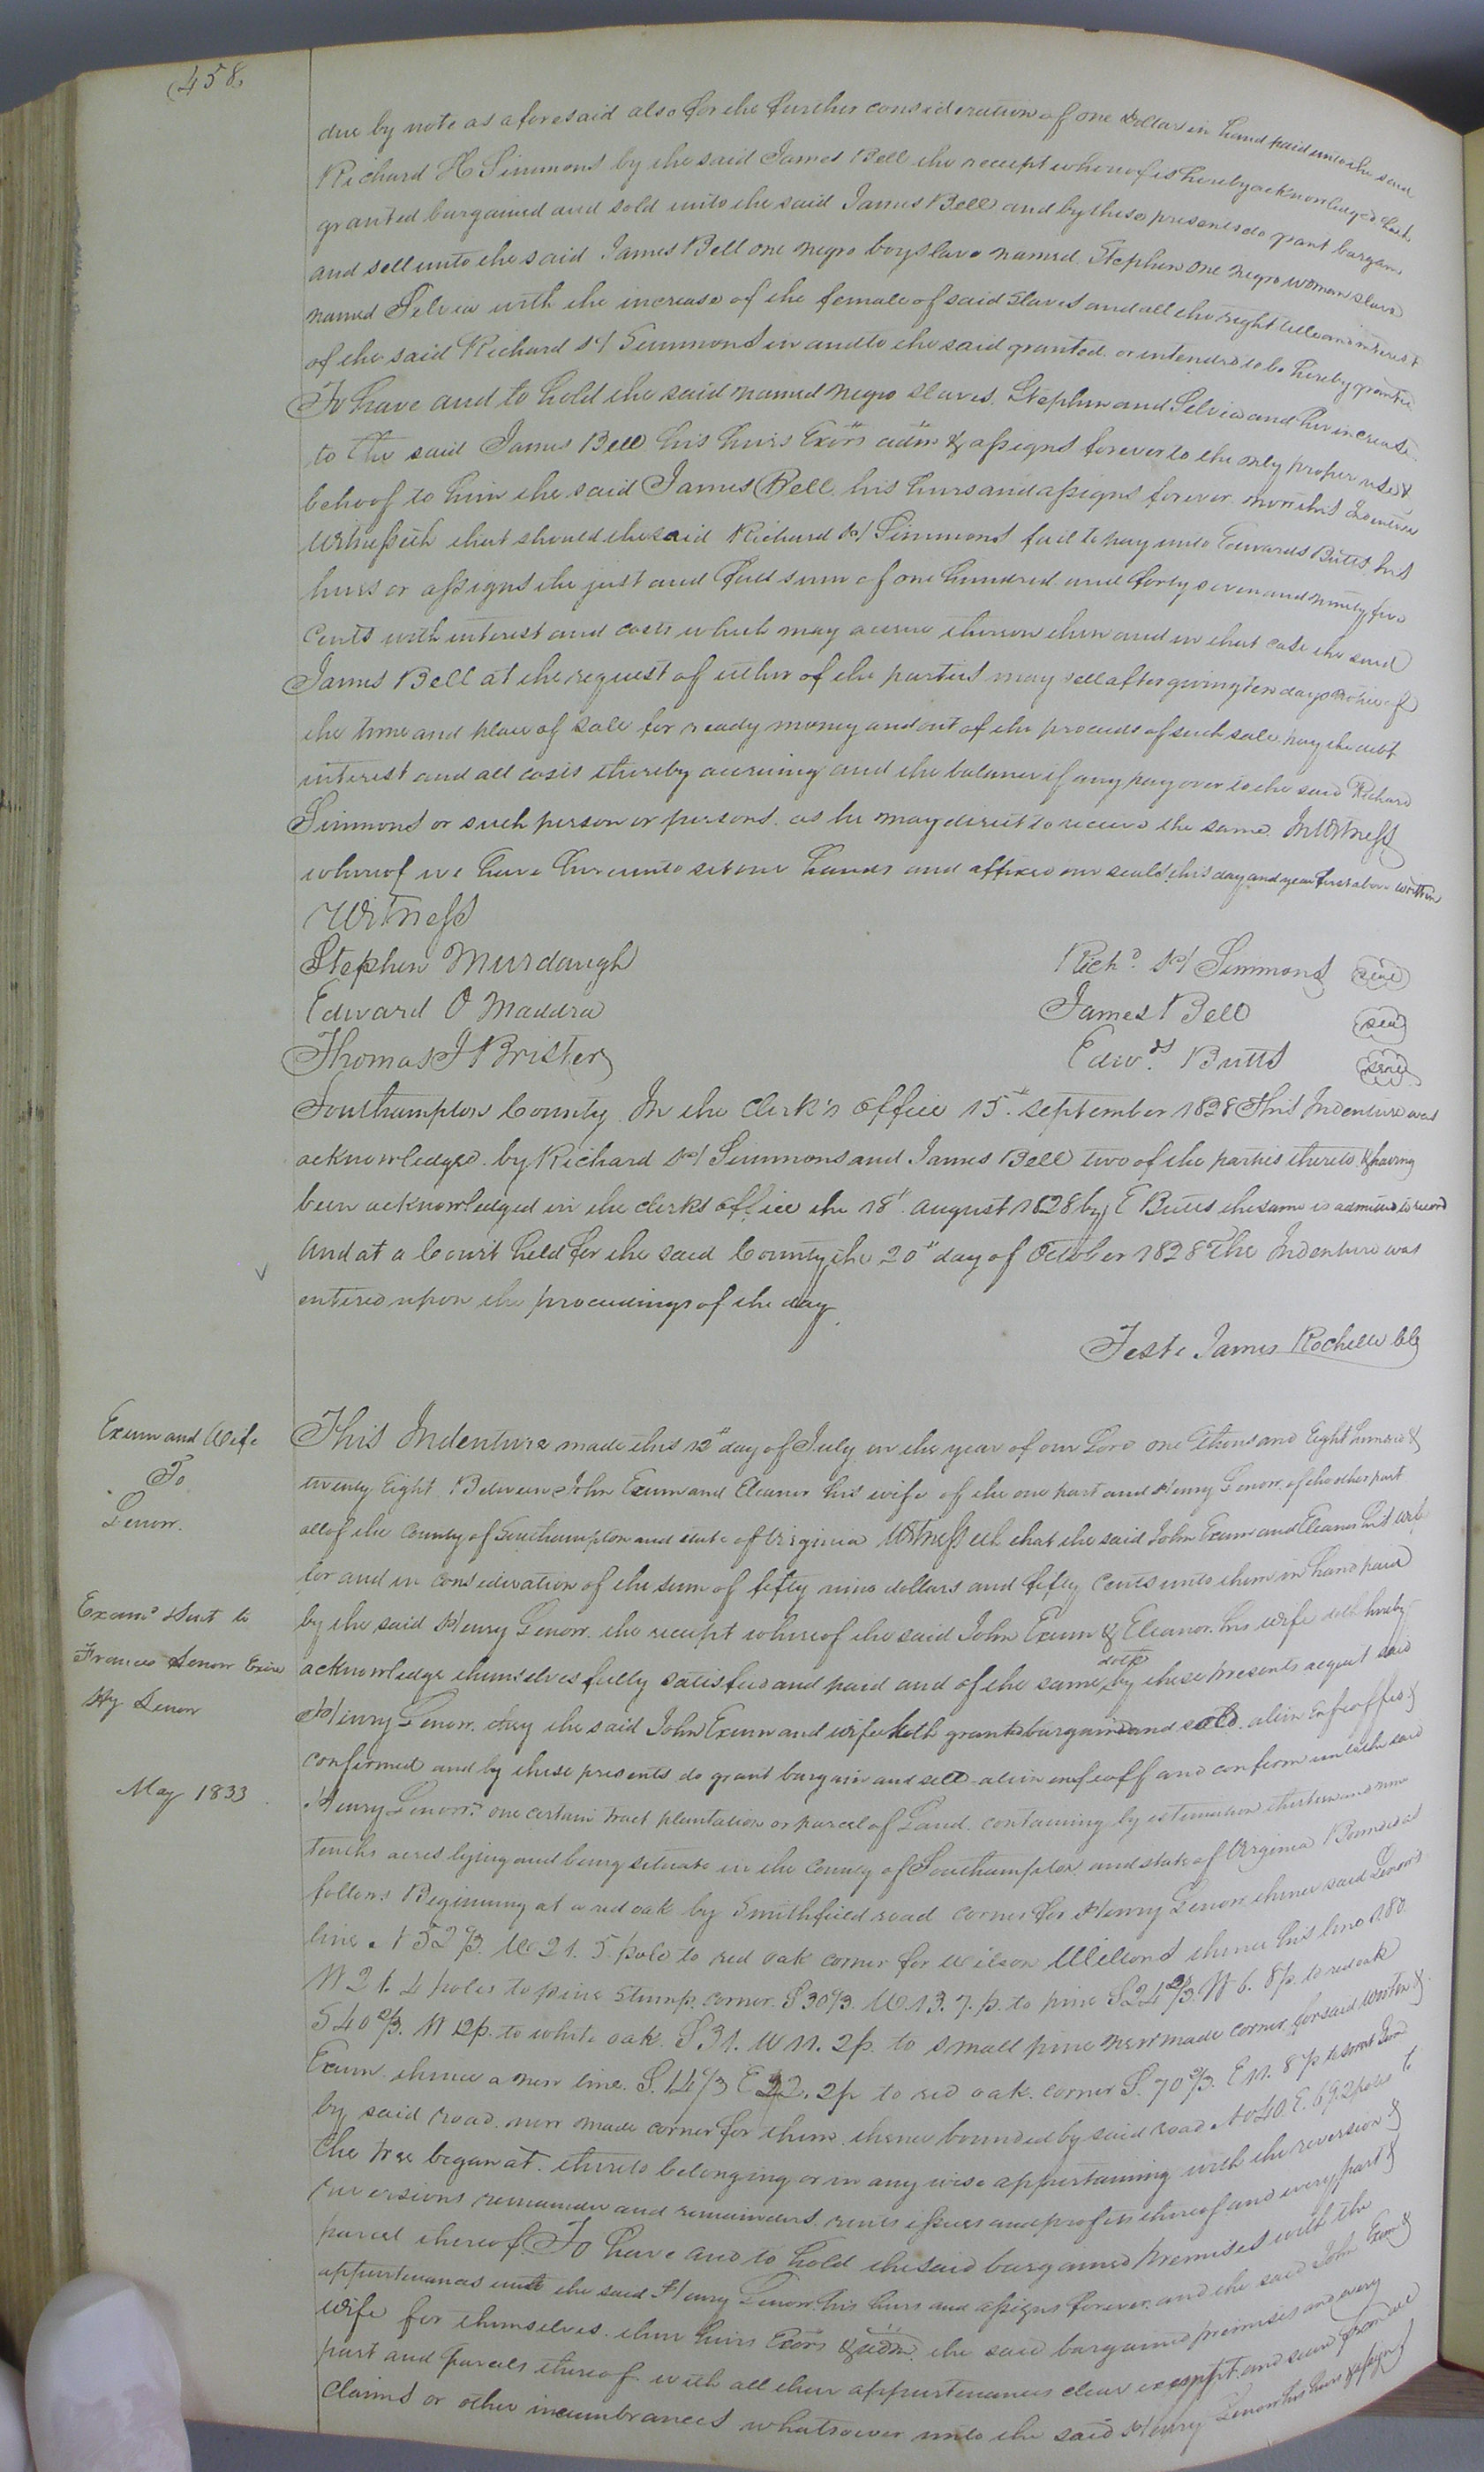 (458.
due by note as aforesaid also for the further consideration of one Dollar in hand paid unto the said
Richard H Simmons by the said James Bell the receipt whereof is hereby acknowledged hath
granted bargained and sold unto the said James Bell and by these presents do grant bargain
and sell unto the said James Bell one negro boy slave named Stephen one negro woman slave
named Silvia with the increase of the female of said slaves and all the right title and interest
of the said Richard H Simmons in and to the said granted or intended to be hereby granted
To have and to hold the said named negro slaves Stephen and Silvia and her increase
to the said James Bell his heirs Exors adm & assigns forever to the only proper use &
behoof to him the said James Bell his heirs and assigns forever now this Indenture
Witnesseth that should the said Richard H Simmons fail to pay unto Edwards Butts his
heirs or assigns the just and full sum of one hundred and forty seven and ninety five
Cents with interest and costs which may accrue thereon then and in that case the said
James Bell at the request of either of the parties may sell after giving ten days notice of
the time and place of sale for ready money and out of the proceeds of such sale pay the debt
interest and all costs thereby accruing and the balance if any pay over to the said Richard
Simmons or such person or persons as he may direct to receive the same. In Witness
whereof we have hereunto set our hands and affixed our seals this day and year first above written
Witness
Stephen Murdaugh Rich.d H Simmons seal
Edward O Maddra James Bell seal
Thomas J Brister Edw.ds Butts seal
Southampton County In the Clerk's office 15th september 1828 This Indenture was
acknowledged by Richard H Simmons and James Bell two of the parties thereto & having
been acknowledged in the clerks office the 18th august 1828 by E Butts the same is admitted to record
And at a Court held for the said County the 20th day of October 1828 The Indenture was
entered upon the proceedings of the day.
Teste James Rochelle Clk
Exum and Wife
To
Lenow.
Exam.d & sent to
Frances Lenow Exix
Hy Lenow
May 1833
This Indenture made this 12th day of July in the year of our Lord one thousand Eight hundred &
twenty Eight Between John Exum and Eleanor his wife of the one part and Henry Lenow of the other part
all of the County of Southampton and state of Virginia Witnesseth that the said John Exum and Eleanor his wife
for and in consideration of the sum of fifty nine dollars and fifty Cents unto them in hand paid
by the said Henry Lenow the receipt whereof the said John Exum & Eleanor his wife doth hereby
acknowledge themselves fully satisfied and paid and of the same doth by these presents acquit said
Henry Lenow they the said John Exum and wife hath granted bargained and sold alien Enfeoffed &
confirmed and by these presents do grant bargain and sell alien enfeoff and confirm unto the said
Henry Lenow one certain tract plantation or parcel of Land containing by estimation thirteen and nine
tenths acres lying and being situate in the County of Southampton and state of Virginia Bounded as
follows Beginning at a red oak by Smithfield road corner for Henry Lenow thence said Lenow's
line N 52 2/3. W 21. 5. pole to red oak corner for Wilson Williams thence his line S 80.
W 21. 4 poles to pine stump corner. S 30 2/3. W. 13. 7. p. to pine S 24 2/3. W 6. 8 p. to red oak
S 40 2/3. W 12 p. to white oak. S 31. W 11. 2 p. to small pine new made corner for said &
Exum thence a new line. S. 14 2/3 E 22. 2 p to red oak corner S. 70 2/3. E 11. 8 p to
by said road new made corner for them thence bounded by said road N 40. E. 69. 2 poles to
the tree began at. thereto belonging or in any wise appertaining with the reversion &
reversions remainder and remainders rents issues and profits thereof and every part &
parcel thereof To have and to hold the said bargained premises with the
appurtenances unto the said Henry Lenow his heirs and assigns forever and the said John Exum &
wife for themselves their heirs Exors & adm the said bargained premises and every
part and parcels thereof with all their appurtenances clear exempt and secured from all
Claims or other incumbrances whatsoever unto the said Henry Lenow his heirs & assigns